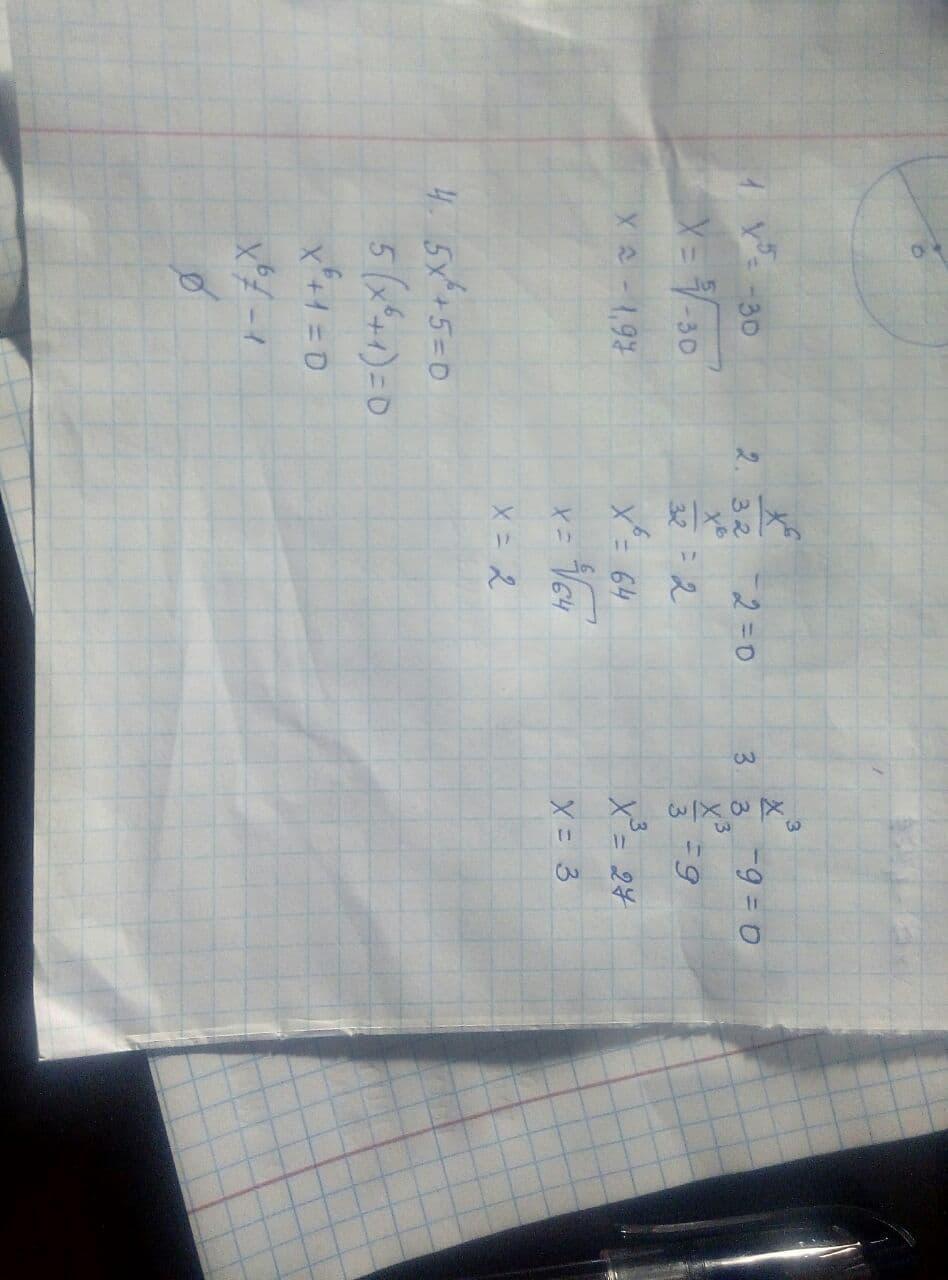 1 x⁵ = -30
x = ⁵√-30
x ≈ -1,97
2. x⁶/32 - 2 = 0
x⁶/32 = 2
x⁶ = 64
x = ⁶√64
x = 2
3 x³/3 - 9 = 0
x³/3 = 9
x³ = 27
x = 3
4. 5x⁶ + 5 = 0
5(x⁶ + 1) = 0
x⁶ + 1 = 0
x⁶ ≠ -1
∅